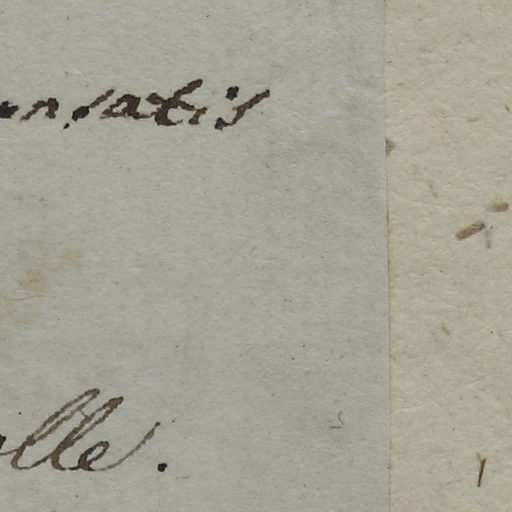 nsatis
lle.